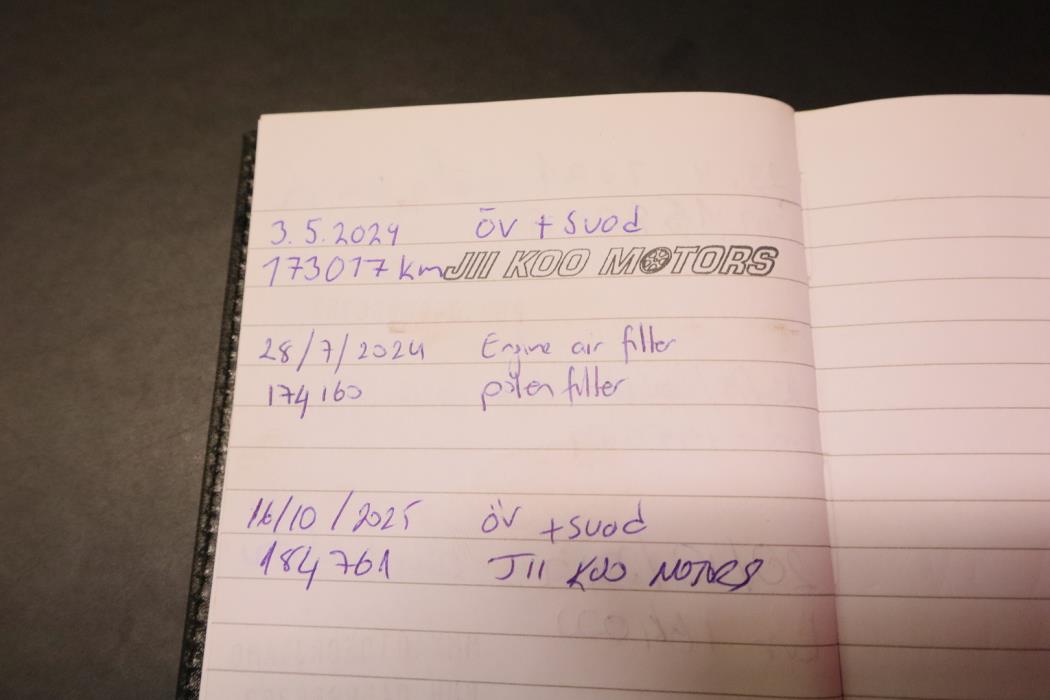 3.5.2024 ÖV + Suod
173017 km JII KOO MOTORS
28/7/2024 Engine air filter
174160 pölen filter
16/10/2025 ÖV + suod
184761 JII KOO MOTORS